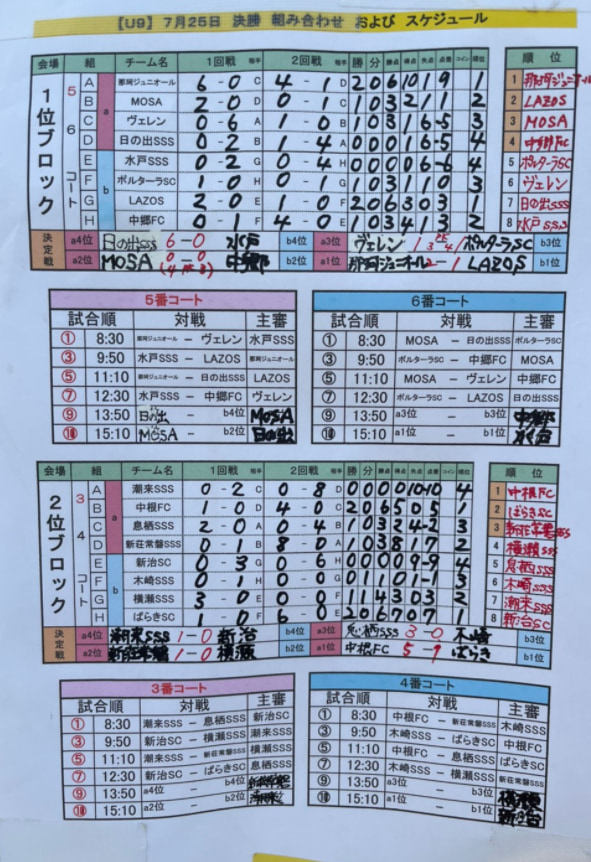 【U9】7月25日 決勝 組み合わせ および スケジュール
会場 組 チーム名 1回戦 相手 2回戦 相手 勝 分 勝点 得点 失点 点差 コイン 順位
1位ブロック
5 6 コート
a
b
A 那珂ジュニオール 6 - 0 C 4 - 1 D 2 0 6 10 1 9 1
B MOSA 2 - 0 D 0 - 1 C 1 0 3 2 1 1 2
C ヴェレン 0 - 6 A 1 - 0 B 1 0 3 1 6 -5 3
D 日の出SSS 0 - 2 B 1 - 4 A 0 0 0 1 6 -5 4
E 水戸SSS 0 - 2 G 0 - 4 H 0 0 0 0 6 -6 4
F ポルターラSC 1 - 0 H 0 - 1 G 1 0 3 1 1 0 3
G LAZOS 2 - 0 E 1 - 0 F 2 0 6 3 0 3 1
H 中郷FC 0 - 1 F 4 - 0 E 1 0 3 4 1 3 2
決定戦 a4位 日の出SSS 6-0 水戸 b4位 a3位 ヴェレン 1 PK 1 ポルターラSC b3位
a2位 MOSA 0-0 中郷 b2位 a1位 那珂ジュニオール 2-1 LAZOS b1位
順位
1 那珂ジュニオール
2 LAZOS
3 MOSA
4 中郷FC
5 ポルターラSC
6 ヴェレン
7 日の出SSS
8 水戸SSS
5番コート
試合順 対戦 主審
① 8:30 那珂ジュニオール - ヴェレン 水戸SSS
③ 9:50 水戸SSS - LAZOS 那珂ジュニオール
⑤ 11:10 那珂ジュニオール - 日の出SSS LAZOS
⑦ 12:30 水戸SSS - 中郷FC ヴェレン
⑨ 13:50 日の出 - b4位 MOSA
⑩ 15:10 MOSA - b2位 日の出
6番コート
試合順 対戦 主審
① 8:30 MOSA - 日の出SSS ポルターラSC
③ 9:50 ポルターラSC - 中郷FC MOSA
⑤ 11:10 MOSA - ヴェレン 中郷FC
⑦ 12:30 ポルターラSC - LAZOS 日の出SSS
⑨ 13:50 a3位 - b3位 中郷
⑩ 15:10 a1位 - b1位 水戸
会場 組 チーム名 1回戦 相手 2回戦 相手 勝 分 勝点 得点 失点 点差 コイン 順位
2位ブロック
3 4 コート
a
b
A 潮来SSS 0 - 2 C 0 - 8 D 0 0 0 0 10 -10 4
B 中根FC 1 - 0 D 4 - 0 C 2 0 6 5 0 5 1
C 息栖SSS 2 - 0 A 0 - 4 B 1 0 3 2 4 -2 3
D 新荘常磐SSS 0 - 1 B 8 - 0 A 1 0 3 8 1 7 2
E 新治SC 0 - 3 G 0 - 6 H 0 0 0 0 9 -9 4
F 木崎SSS 0 - 1 H 0 - 0 G 0 1 1 0 1 -1 3
G 横瀬SSS 3 - 0 E 0 - 0 F 1 1 4 3 0 3 2
H ばらきSC 1 - 0 F 6 - 0 E 2 0 6 7 0 7 1
決定戦 a4位 潮来SSS 1-0 新治 b4位 a3位 息栖SSS 3-0 木崎 b3位
a2位 新荘常磐 1-0 横瀬 b2位 a1位 中根FC 5-1 ばらき b1位
順位
1 中根FC
2 ばらきSC
3 新荘常磐SSS
4 横瀬SSS
5 息栖SSS
6 木崎SSS
7 潮来SSS
8 新治SC
3番コート
試合順 対戦 主審
① 8:30 潮来SSS - 息栖SSS 新治SC
③ 9:50 新治SC - 横瀬SSS 潮来SSS
⑤ 11:10 潮来SSS - 新荘常磐SSS 横瀬SSS
⑦ 12:30 新治SC - ばらきSC 息栖SSS
⑨ 13:50 a4位 - b4位 新荘常磐
⑩ 15:10 a2位 - b2位 潮来
4番コート
試合順 対戦 主審
① 8:30 中根FC - 新荘常磐SSS 木崎SSS
③ 9:50 木崎SSS - ばらきSC 中根FC
⑤ 11:10 中根FC - 息栖SSS ばらきSC
⑦ 12:30 木崎SSS - 横瀬SSS 新荘常磐SSS
⑨ 13:50 a3位 - b3位 横瀬
⑩ 15:10 a1位 - b1位 新治